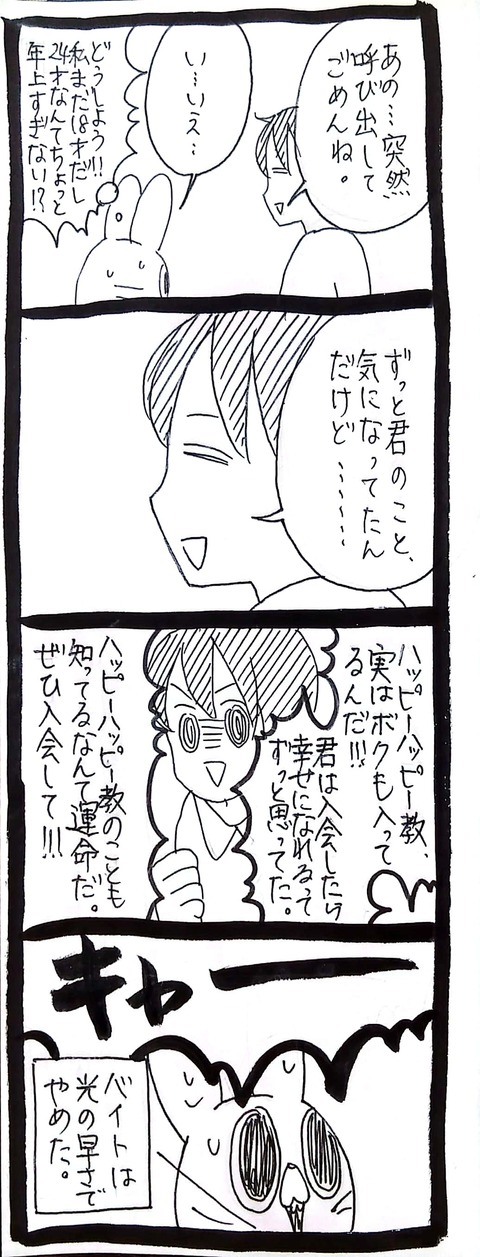 あの…突然
呼び出して
ごめんね。
い…いえ…
どうしよう!!
私まだ18才だし
24才なんてちょっと
年上すぎない!?
ずっと君のこと、
気になってたん
だけど……
ハッピーハッピー教、
実はボクも入って
るんだ!!!
君は入会したら
幸せになれるって
ずっと思ってた。
ハッピーハッピー教のことも
知ってるなんて運命だ。
ぜひ入会して!!!
キャー
バイトは
光の早さで
やめた。